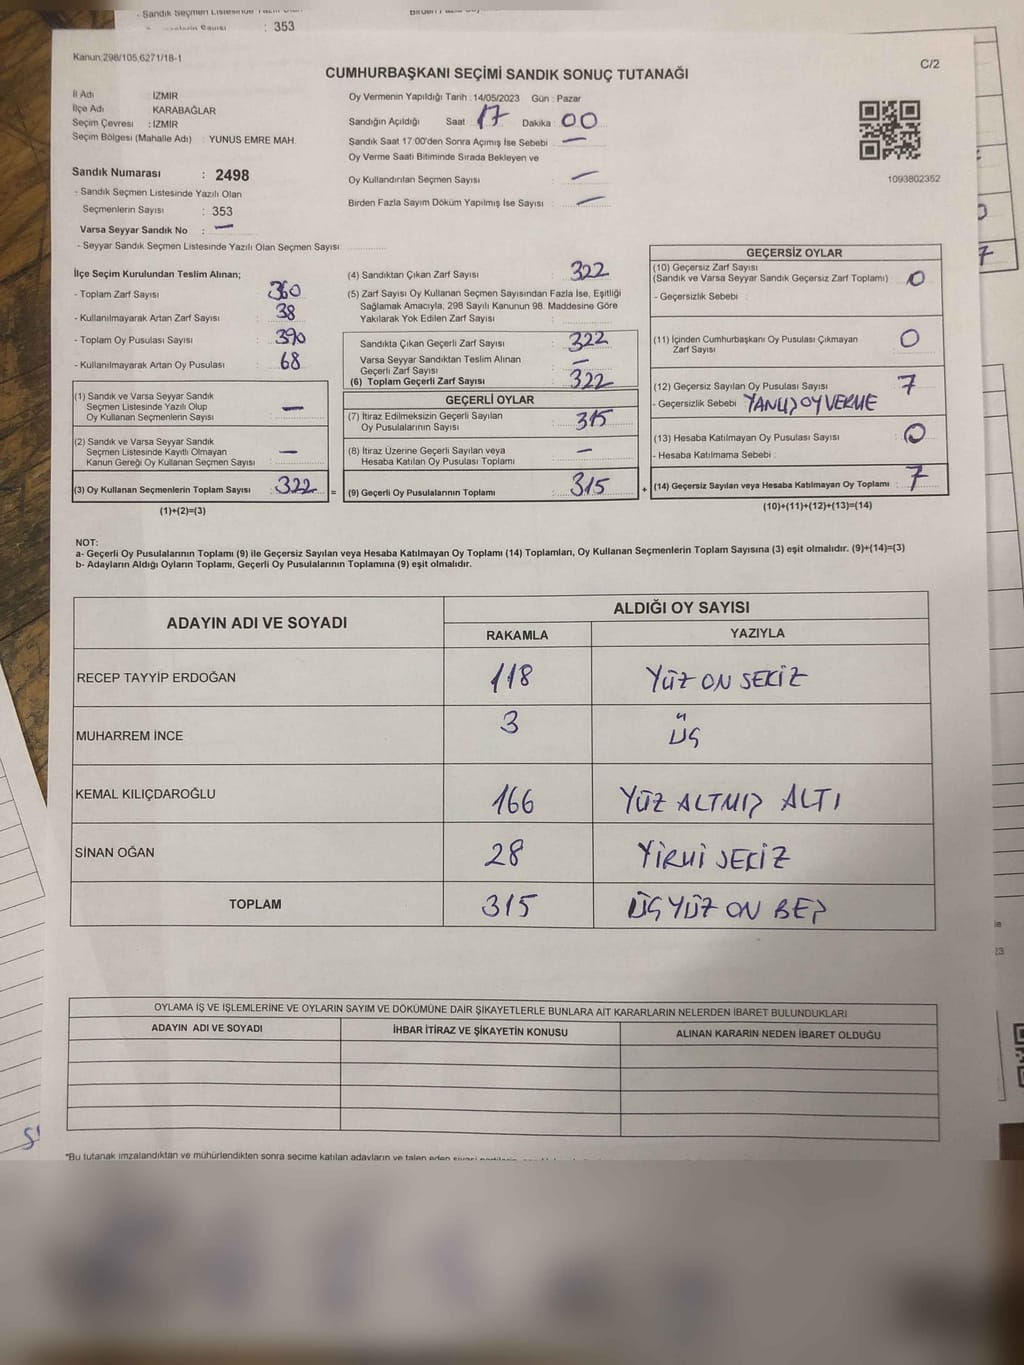 - Sandık Seçmen Listesinde Yazılı Olan
: 353
Kanun:298/105,6271/18-1
C/2
CUMHURBAŞKANI SEÇİMİ SANDIK SONUÇ TUTANAĞI
İl Adı : İZMİR
İlçe Adı KARABAĞLAR
Seçim Çevresi : İZMİR
Seçim Bölgesi (Mahalle Adı) : YUNUS EMRE MAH.
Oy Vermenin Yapıldığı Tarih : 14/05/2023 Gün : Pazar
Sandığın Açıldığı Saat 17 Dakika : 00
Sandık Saat 17:00'den Sonra Açımış İse Sebebi —
Oy Verme Saati Bitiminde Sırada Bekleyen ve
Oy Kullandırılan Seçmen Sayısı : —
Birden Fazla Sayım Döküm Yapılmış İse Sayısı : —
1093802352
Sandık Numarası : 2498
- Sandık Seçmen Listesinde Yazılı Olan
Seçmenlerin Sayısı : 353
Varsa Seyyar Sandık No : —
- Seyyar Sandık Seçmen Listesinde Yazılı Olan Seçmen Sayısı
İlçe Seçim Kurulundan Teslim Alınan;
- Toplam Zarf Sayısı : 360
- Kullanılmayarak Artan Zarf Sayısı : 38
- Toplam Oy Pusulası Sayısı : 390
- Kullanılmayarak Artan Oy Pusulası : 68
(1) Sandık ve Varsa Seyyar Sandık
Seçmen Listesinde Yazılı Olup
Oy Kullanan Seçmenlerin Sayısı : —
(2) Sandık ve Varsa Seyyar Sandık
Seçmen Listesinde Kayıtlı Olmayan
Kanun Gereği Oy Kullanan Seçmen Sayısı : —
(3) Oy Kullanan Seçmenlerin Toplam Sayısı : 322 =
(1)+(2)=(3)
(4) Sandıktan Çıkan Zarf Sayısı : 322
(5) Zarf Sayısı Oy Kullanan Seçmen Sayısından Fazla İse, Eşitliği
Sağlamak Amacıyla, 298 Sayılı Kanunun 98. Maddesine Göre
Yakılarak Yok Edilen Zarf Sayısı :
Sandıkta Çıkan Geçerli Zarf Sayısı : 322
Varsa Seyyar Sandıktan Teslim Alınan
Geçerli Zarf Sayısı : —
(6) Toplam Geçerli Zarf Sayısı : 322
GEÇERLİ OYLAR
(7) İtiraz Edilmeksizin Geçerli Sayılan
Oy Pusulalarının Sayısı : 315
(8) İtiraz Üzerine Geçerli Sayılan veya
Hesaba Katılan Oy Pusulası Toplamı : —
(9) Geçerli Oy Pusulalarının Toplamı : 315 +
GEÇERSİZ OYLAR
(10) Geçersiz Zarf Sayısı
(Sandık ve Varsa Seyyar Sandık Geçersiz Zarf Toplamı) : 0
- Geçersizlik Sebebi :
(11) İçinden Cumhurbaşkanı Oy Pusulası Çıkmayan
Zarf Sayısı : 0
(12) Geçersiz Sayılan Oy Pusulası Sayısı : 7
- Geçersizlik Sebebi YANLIŞ OY VERME
(13) Hesaba Katılmayan Oy Pusulası Sayısı : 0
- Hesaba Katılmama Sebebi :
(14) Geçersiz Sayılan veya Hesaba Katılmayan Oy Toplamı : 7
(10)+(11)+(12)+(13)=(14)
NOT:
a- Geçerli Oy Pusulalarının Toplamı (9) ile Geçersiz Sayılan veya Hesaba Katılmayan Oy Toplamı (14) Toplamları, Oy Kullanan Seçmenlerin Toplam Sayısına (3) eşit olmalıdır. (9)+(14)=(3)
b- Adayların Aldığı Oyların Toplamı, Geçerli Oy Pusulalarının Toplamına (9) eşit olmalıdır.
ADAYIN ADI VE SOYADI ALDIĞI OY SAYISI
RAKAMLA YAZIYLA
RECEP TAYYİP ERDOĞAN 118 YÜZ ON SEKİZ
MUHARREM İNCE 3 ÜÇ
KEMAL KILIÇDAROĞLU 166 YÜZ ALTMIŞ ALTI
SİNAN OĞAN 28 YİRMİ SEKİZ
TOPLAM 315 ÜÇ YÜZ ON BEŞ
OYLAMA İŞ VE İŞLEMLERİNE VE OYLARIN SAYIM VE DÖKÜMÜNE DAİR ŞİKAYETLERLE BUNLARA AİT KARARLARIN NELERDEN İBARET BULUNDUKLARI
ADAYIN ADI VE SOYADI İHBAR İTİRAZ VE ŞİKAYETİN KONUSU ALINAN KARARIN NEDEN İBARET OLDUĞU
*Bu tutanak imzalandıktan ve mühürlendikten sonra seçime katılan adayların ve talep eden siyasi